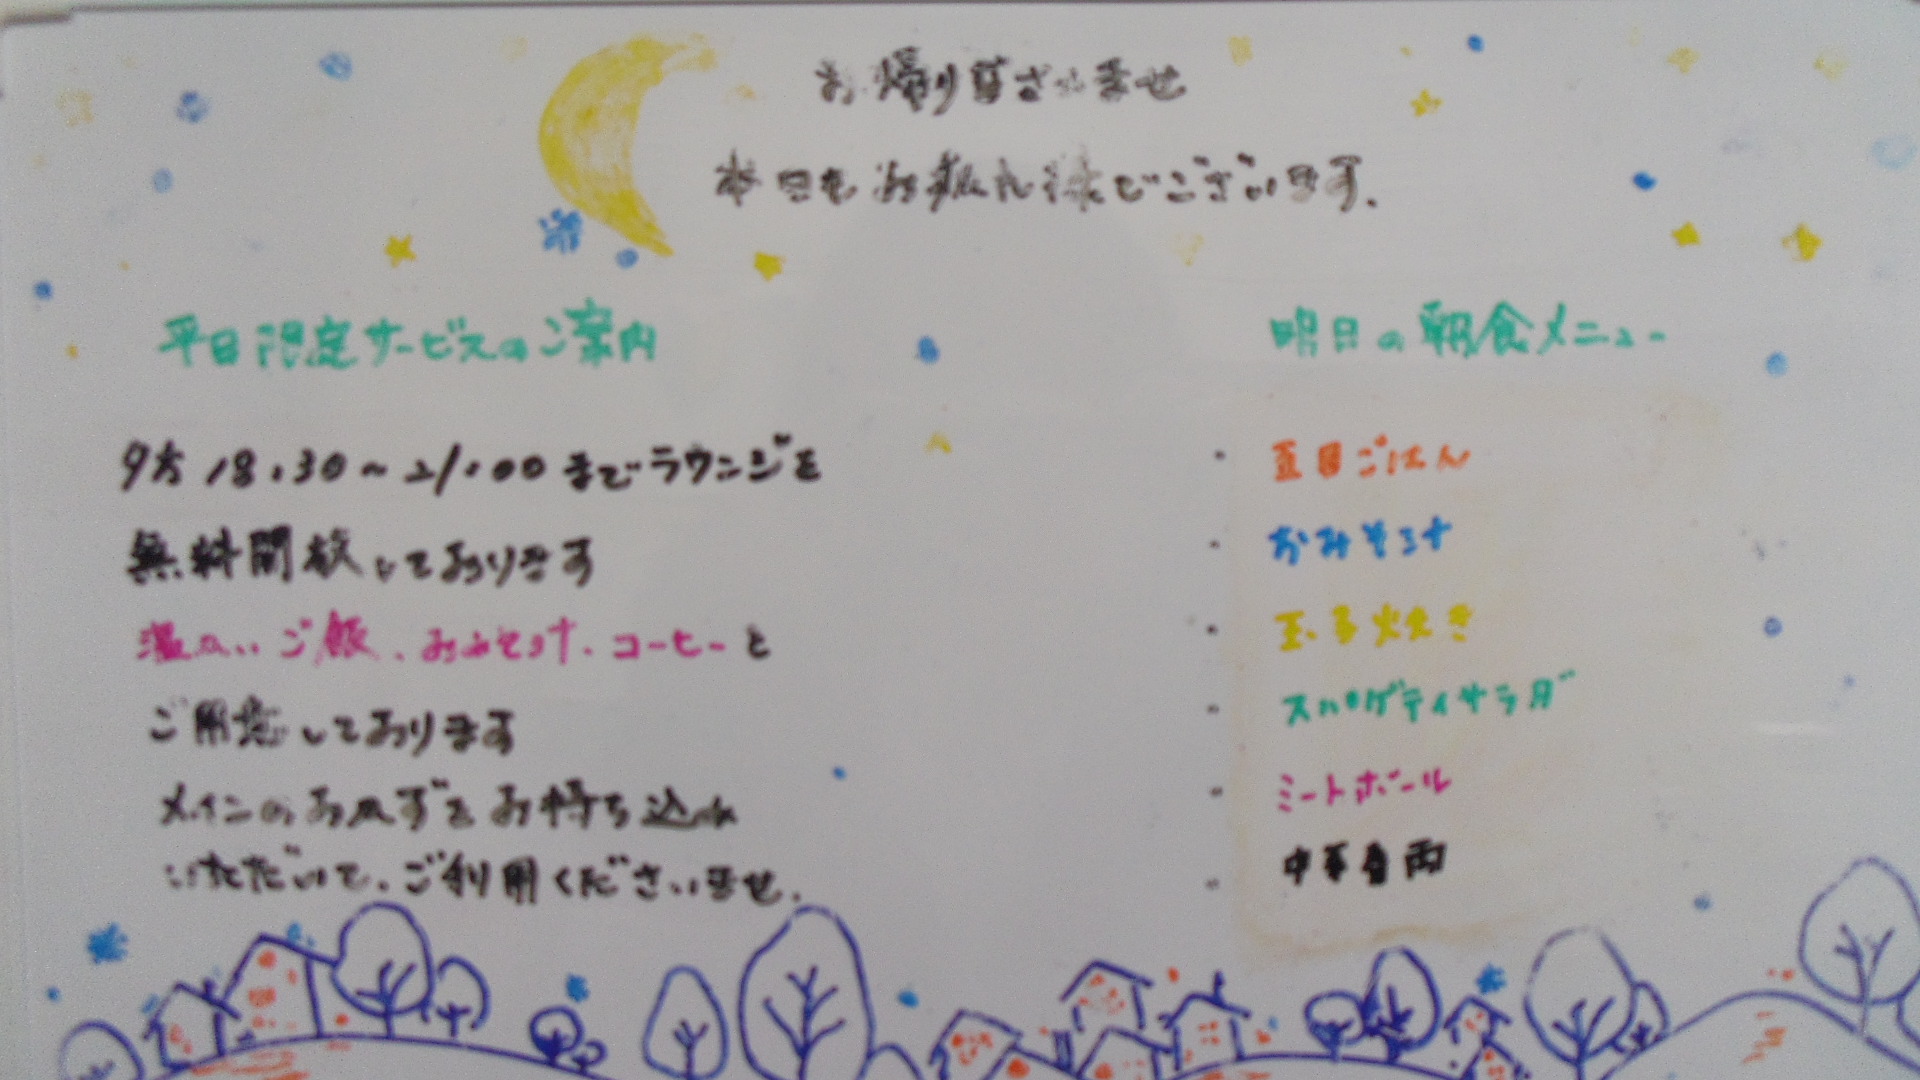 お帰りなさいませ
本日もお疲れ様でございます.
平日限定サービスのご案内
夕方 18:30~21:00までラウンジを
無料開放しております
温かいご飯、おみそ汁、コーヒーと
ご用意しております
メインのおかずをお持ち込み
いただいて、ご利用くださいませ.
明日の朝食メニュー
・五目ごはん
・おみそ汁
・玉子焼き
・スパゲティサラダ
・ミートボール
・中華春雨